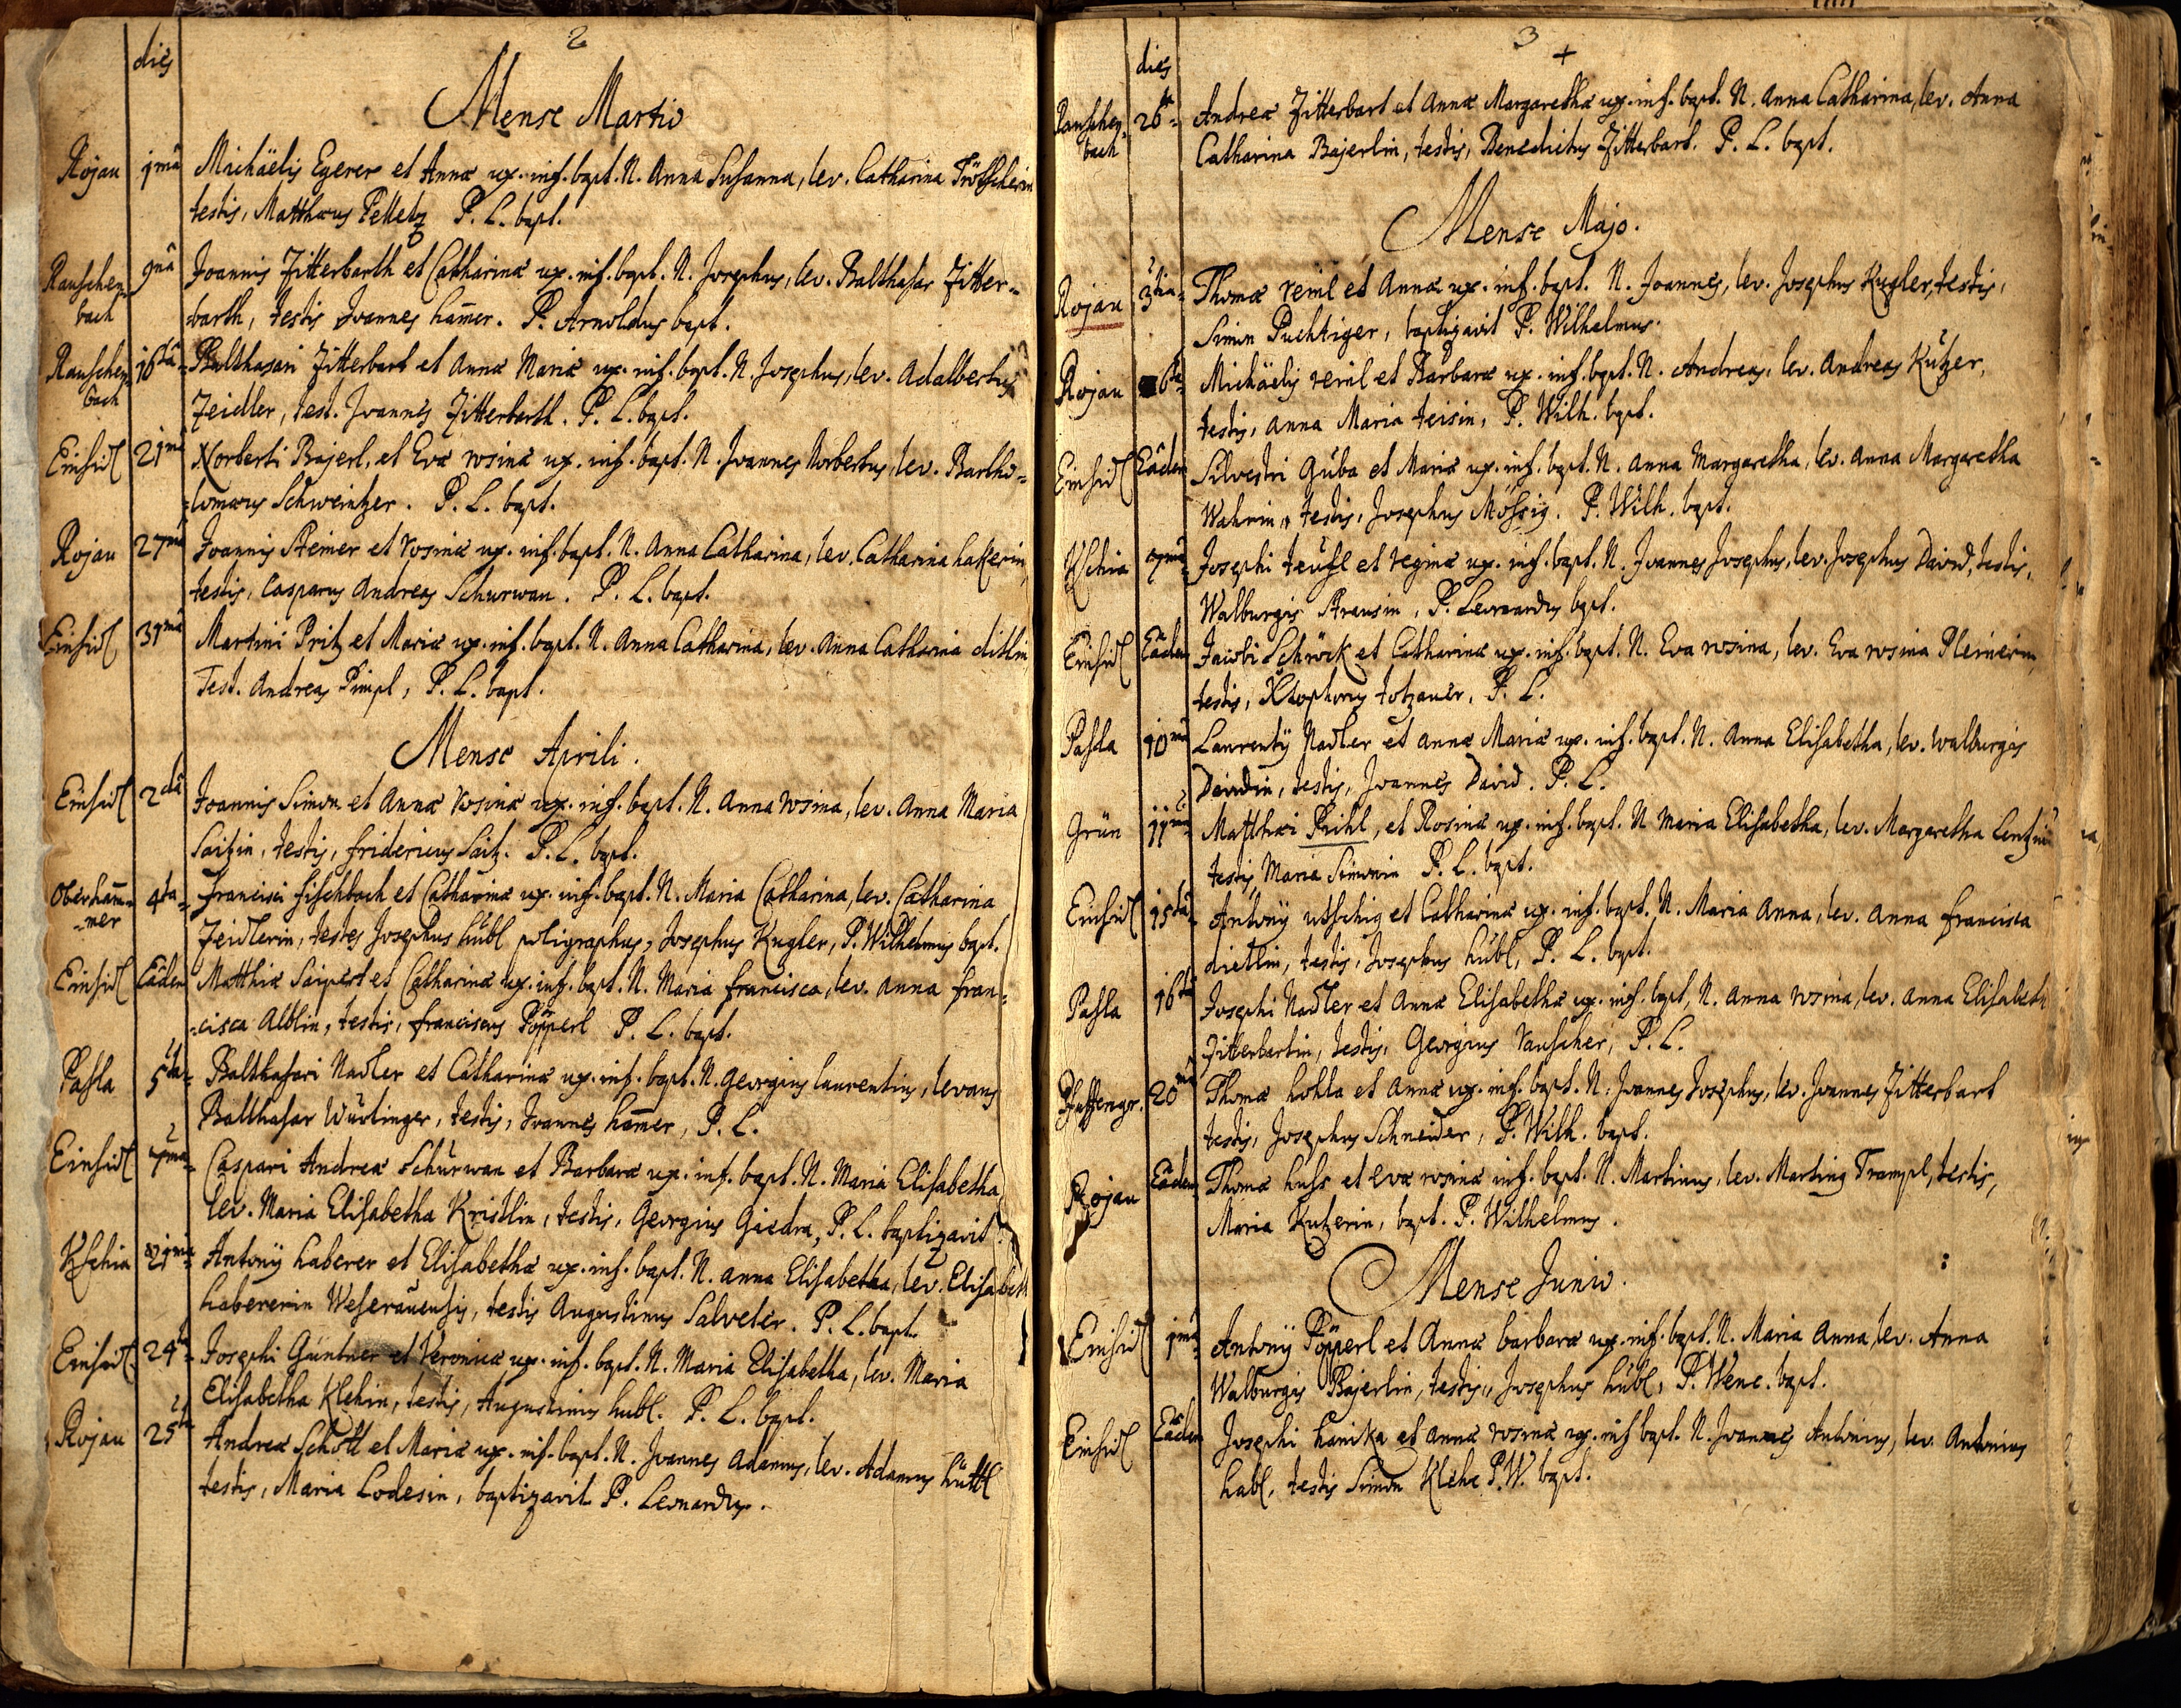 2
dies
Mense Martio
Rojau 1mâ Michaëlis Egerer et Annæ ux. inf. bapt. N. Anna Susanna, lev. Catharina Tröscherin
testis, Matthæus Pelletz P. L. bapt.
Rauschen= 9nâ Joannis Zitterbarth et Catharinæ ux. inf. bapt. N. Josephus, lev. Balthasar Zitter=
bach =barth, testis Joannes ham̄er. P. Arnoldus bapt.
Rauschen= 16tâ Balthasari Zitterbart et Annæ Mariæ ux. inf. bapt. N. Josephus, lev. Adalbertus
bach Zeidler, test. Joannes Zitterbarth. P. L. bapt.
Einsidl 21mâ Norberti Bajerl, et Evæ rosinæ ux. inf. bapt. N. Joannes Norbertus, lev. Bartho=
=lomæus Schweintzer. P. L. bapt.
Rojau 27mâ Joannis Steiner et rosinæ ux. inf. bapt. N. Anna Catharina, lev. Catharina hakerin,
testis, Casparus Andreas Schurwan. P. L. bapt.
Einsidl 31mâ Martini Pritz et Mariæ ux. inf. bapt. N. Anna Catharina, lev. Anna Catharina ditlin,
Test. Andreas Pimpl, P. L. bapt.
Mense Aprili.
Einsidl 2dâ Joannis Simon et Annæ rosinæ ux. inf. bapt. N. Anna rosina, lev. Anna Maria
Saitzin, testis, fridericus Saitz. P. L. bapt.
Oberham̄= 4tâ francisci fischbach et Catharinæ ux. inf. bapt. N. Maria Catharina, lev. Catharina
=mer Zeidlerin, testes Josephus hübl poligraphus, Josephus Kugler, P. Wilhelmus bapt.
Einsidl Eâdem Matthiæ Saipert et Catharinæ ux. inf. bapt. N. Maria francisca, lev. anna fran=
=cisca Alblin, testis, franciscus Pöpperl P. L. bapt.
Pasla 5tâ Balthasari Nadler et Catharinæ ux. inf. bapt. N. Georgius laurentius, levans
Balthasar Würlinger, testis, Joannes ham̄er, P. L.
Einsidl 7mâ Caspari Andreæ Schürwan et Barbaræ ux. inf. bapt. N. Maria Elisabetha,
lev. Maria Elisabetha Kristlin, testis, Georgius Giedra, P. L. baptizavit.
Kschia 21mâ Antonÿ haberer et Elisabethæ ux. inf. bapt. N. anna Elisabetha, lev. Elisabeth
habererin Weserauensis, testis Augustinus Salveter. P. L. bapt.
Einsidl 24tâ Josephi Güntner et Veronicæ ux. inf. bapt. N. Maria Elisabetha, lev. Maria
Elisabetha Klehin, testis, Augustinus hubl. P. L. bapt.
Rojau 25tâ Andreæ Schötl et Mariæ ux. inf. bapt. N. Joannes Adamus, lev. Adamus hüttl
testis, Maria Lodesin, baptizavit P. Leonardus.
3
dies
Rauschen= 26tâ Andreæ Zitterbart et Annæ Margarethæ ux. inf. bapt. N. Anna Catharina, lev. Anna
bach Catharina Bajerlin, testis, Benedictus Zitterbart. P. L. bapt.
Mense Majo.
Rojau 3tia Thomæ reml et Annæ ux. inf. bapt. N. Joannes, lev. Josephus Kugler, testis,
Simon Puchtiger, baptizavit P. Wilhelmus.
Rojau 6tâ Michäelis reml et Barbaræ ux. inf. bapt. N. Andreas, lev. Andreas Kutzer,
testis, Anna Maria teisin, P. Wilh. bapt.
Einsidl Eâdem Silvestri Guba et Mariæ ux. inf. bapt. N. Anna Margaretha, lev. Anna Margaretha
Wahrin, testis, Josephus Mössig. P. Wilh. bapt.
Kschia 7mâ Josephi teufl et reginæ ux. inf. bapt. N. Joannes Josephus, lev. Josephus David, testis,
Walburgis Strausin, P. Leonardus bapt.
Einsidl Eâdem Jacobi Schröck et Catharinæ ux. inf. bapt. N. Eva rosina, lev. Eva rosina Pleinerin,
testis, Xtophorus totzauer. P. L.
Pasla 10mâ Laurentÿ Nadler et annæ Mariæ ux. inf. bapt. N. Anna Elisabetha, lev. walburgis
Davidin, testis, Joannes David. P. L.
Grün 11mâ Matthæi Prihl, et Rosinæ ux. inf. bapt. N. Maria Elisabetha, lev. Margaretha Lentzin
testis, Maria Simonin P. L. bapt.
Einsidl 15tâ Antonÿ utschig et Catharinæ ux. inf. bapt. N. Maria Anna, lev. Anna francisca
dietlin, testis, Josephus hübl, P. L. bapt.
Pasla 16tâ Josephi Nadler et Annæ Elisabethæ ux. inf. bapt. N. Anna rosina, lev. Anna Elisabeth
Zitterbartin, testis, Georgius rauscher, P. L.
Pfaffengr. 20mâ Thomæ hohla et Annæ ux. inf. bapt. N. Joannes Josephus, lev. Joannes Zitterbart
testis, Josephus Schneider, P. Wilh. bapt.
Rojau Eâdem Thomæ huss et Evæ rosinæ inf. bapt. N. Martinus, lev. Martinus Trampl, testis,
Maria Kutzerin, bapt. P. Wilhelmus.
Mense Junio.
Einsidl 1mâ Antonÿ Pöpperl et Annæ barbaræ ux. inf. bapt. N. Maria Anna, lev. Anna
Walburgis Bajerlin, testis, Josephus hübl, P. Wenc. bapt.
Einsidl Eâdem Josephi hanika et annæ rosinæ ux. inf. bapt. N. Joannes Antonius, lev. Antonius
habl, testis Simon Klehe P. W. bapt.